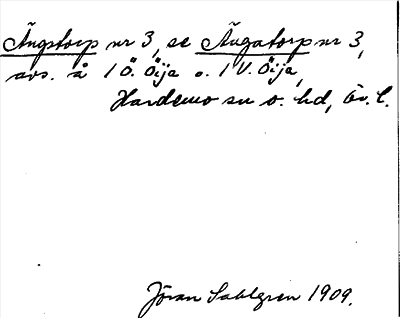 Ängstorp nr 3, se Ängatorp nr 3,
avs. å 1 Ö. Öija o. 1 V. Öija,
Hardemo sn o. hd, Ör. l.
Jöran Sahlgren 1909.